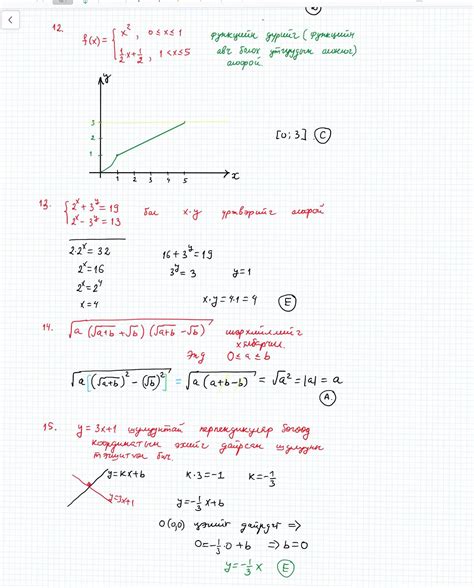 12.
f(x) = { x², 0 ≤ x ≤ 1
½x + ½, 1 < x ≤ 5
функцийн дүрийг (функцийн
авч болох утгуудын олонлог)
олоорой
y
3
2
1
1 2 3 4 5 x
[0; 3] C
13. { 2ˣ + 3ʸ = 19
2ˣ - 3ʸ = 13
бол x·y үржвэрийг олоорой
2·2ˣ = 32
2ˣ = 16
2ˣ = 2⁴
x = 4
16 + 3ʸ = 19
3ʸ = 3 y = 1
x·y = 4·1 = 4 E
14. √(a(√(a+b) + √b)(√(a+b) - √b)) илэрхийллийг
хялбарчил.
Энд 0 ≤ a ≤ b
√(a[(√(a+b))² - (√b)²]) = √(a(a+b-b)) = √a² = |a| = a
A.
15. y = 3x+1 шулуунтай перпендикуляр бөгөөд
координатын эхийг дайрсан шулууны
тэгшитгэл бич.
y = kx+b
y = 3x+1
k·3 = -1 k = -⅓
y = -⅓x + b
O(0,0) цэгийг дайрдаг ⇒
0 = -⅓·0 + b ⇒ b = 0
y = -⅓x E